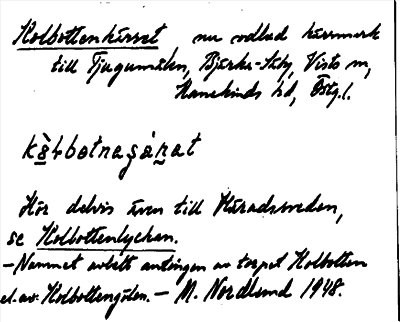 Kolbottenkärret nu odlad kärrmark
till Tjugumålen, Bjärka-Säby, Vists sn,
Hanekinds hd, Östg.l.
Hör delvis även till Häradssveden,
se Kolbottenlyckan.
- Namnet avlett antingen av torpet Kolbotten
el. av Kolbottengölen. - M. Nordlund 1948.